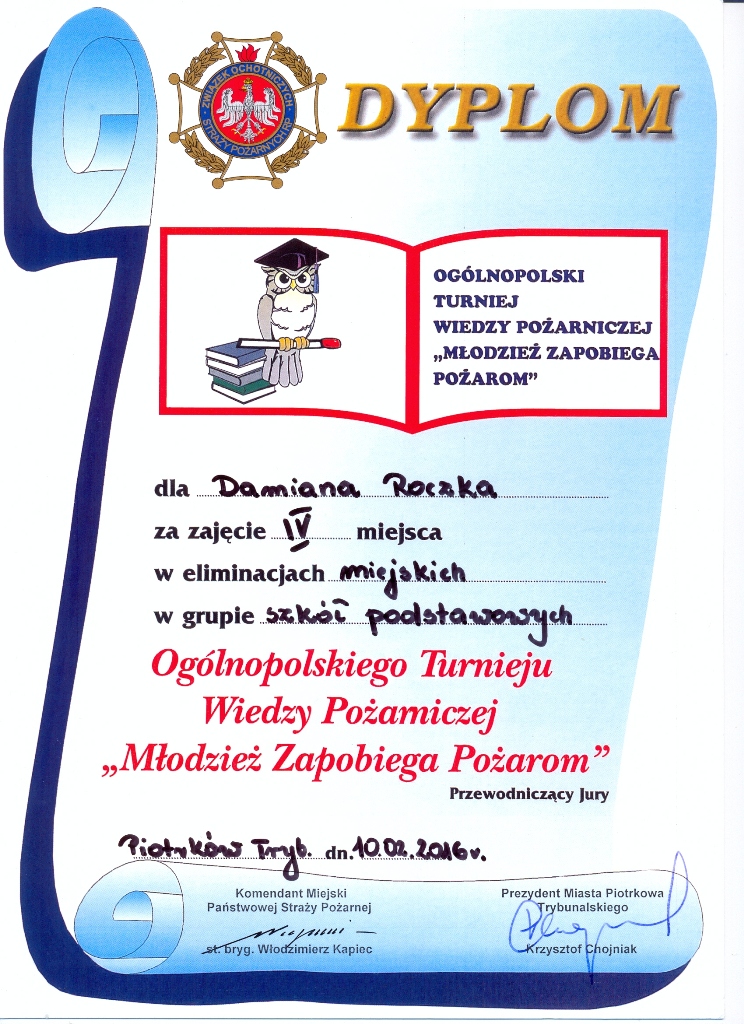 ZWIĄZEK OCHOTNICZYCH
STRAŻY POŻARNYCH RP
DYPLOM
OGÓLNOPOLSKI
TURNIEJ
WIEDZY POŻARNICZEJ
„MŁODZIEŻ ZAPOBIEGA
POŻAROM”
dla Damiana Roczka
za zajęcie IV miejsca
w eliminacjach miejskich
w grupie szkół podstawowych
Ogólnopolskiego Turnieju
Wiedzy Pożarniczej
„Młodzież Zapobiega Pożarom”
Przewodniczący Jury
Piotrków Tryb. dn. 10.02.2016r.
Komendant Miejski
Państwowej Straży Pożarnej
st. bryg. Włodzimierz Kapiec
Prezydent Miasta Piotrkowa
Trybunalskiego
Krzysztof Chojniak